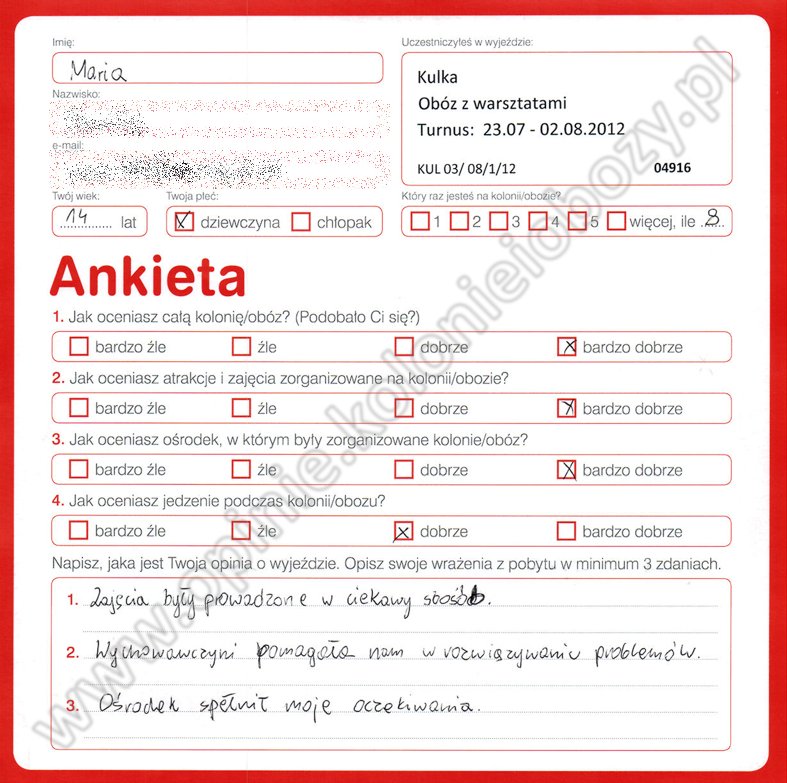 Imię:
Maria
Nazwisko:
e-mail:
Twój wiek:
14 lat
Twoja płeć:
dziewczyna chłopak
Uczestniczyłeś w wyjeździe:
Kulka
Obóz z warsztatami
Turnus: 23.07 - 02.08.2012
KUL 03/ 08/1/12 04916
Który raz jesteś na kolonii/obozie?
1 2 3 4 5 więcej, ile 8
Ankieta
1. Jak oceniasz całą kolonię/obóz? (Podobało Ci się?)
bardzo źle źle dobrze bardzo dobrze
2. Jak oceniasz atrakcje i zajęcia zorganizowane na kolonii/obozie?
bardzo źle źle dobrze bardzo dobrze
3. Jak oceniasz ośrodek, w którym były zorganizowane kolonie/obóz?
bardzo źle źle dobrze bardzo dobrze
4. Jak oceniasz jedzenie podczas kolonii/obozu?
bardzo źle źle dobrze bardzo dobrze
Napisz, jaka jest Twoja opinia o wyjeździe. Opisz swoje wrażenia z pobytu w minimum 3 zdaniach.
1. Zajęcia były prowadzone w ciekawy sposób.
2. Wychowawczyni pomagała nam w rozwiązywaniu problemów.
3. Ośrodek spełnił moje oczekiwania.
www.opinie.kolonieiobozy.pl